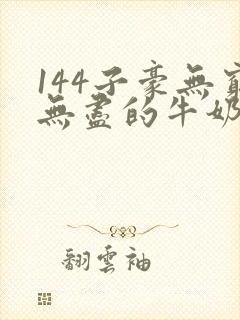 144子豪無窮
無盡的牛奶
翻雲袖